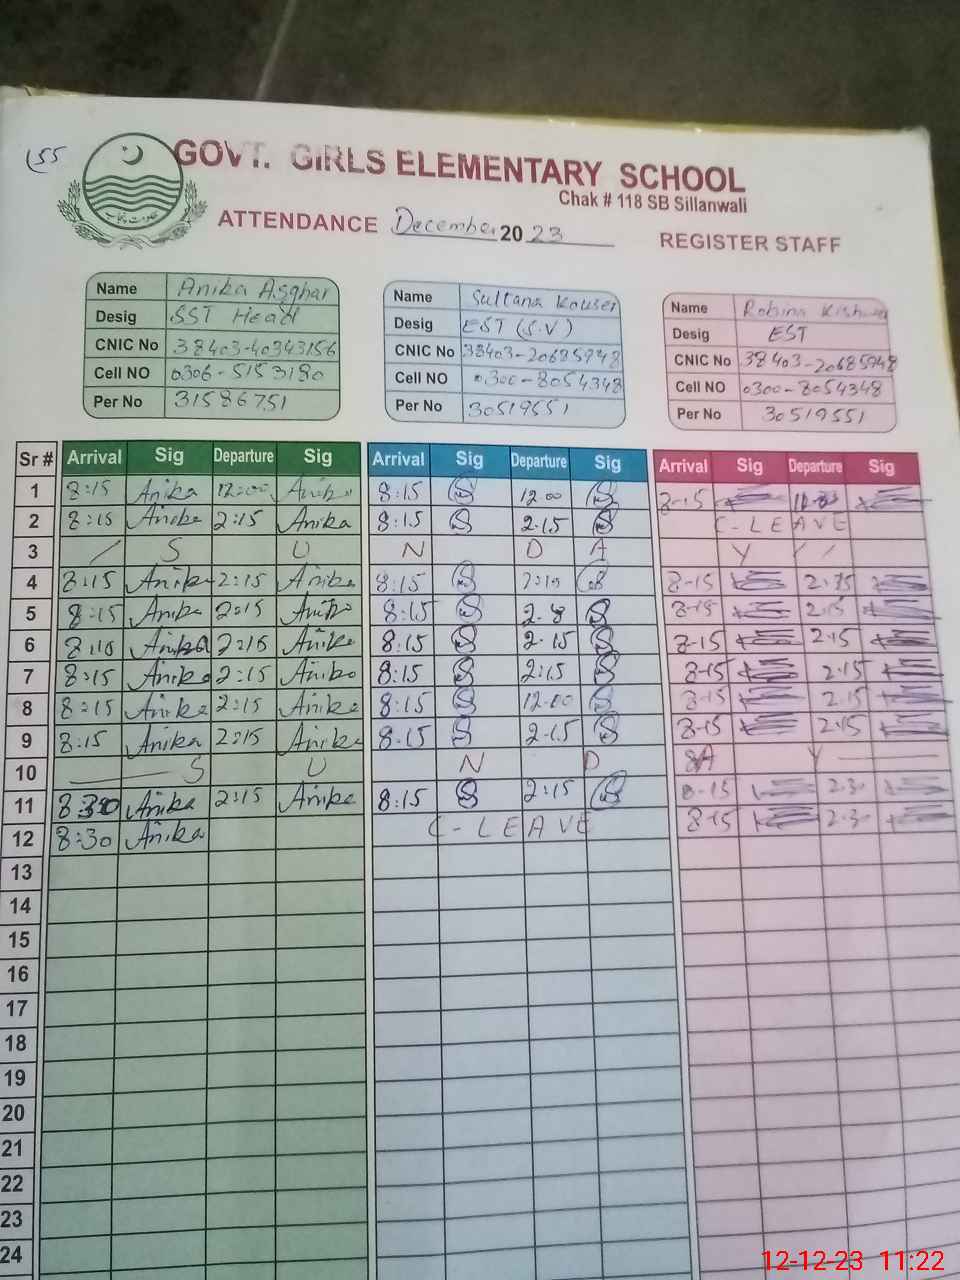 155
GOVT. GIRLS ELEMENTARY SCHOOL
Chak # 118 SB Sillanwali
حکومت پنجاب
ATTENDANCE December 2023 REGISTER STAFF
Name Anika Asghar
Desig SST Head
CNIC No 38403-40343156
Cell NO 0306-5153180
Per No 31586751
Name Sultana Kouser
Desig EST (S.V)
CNIC No 38403-20685948
Cell NO 0300-8054348
Per No 30519551
Name Robina Kishwar
Desig EST
CNIC No 38403-20685948
Cell NO 0300-8054348
Per No 30519551
Sr # Arrival Sig Departure Sig Arrival Sig Departure Sig Arrival Sig Departure Sig
1 8:15 Anika 12:00 Anika 8:15 S 12.00 S 8-15
2 8:15 Anika 2:15 Anika 8:15 S 2.15 S C-LEAVE
3 S U N D A Y
4 8:15 Anika 2:15 Anika 8:15 S S 8-15
5 8:15 Anika 2:15 Anika 8:15 S S 8-15 2.15
6 8:15 Anika 2:15 Anika 8:15 S 2.15 S 8-15 2.15
7 8:15 Anika 2:15 Anika 8:15 S 2:15 S 8-15 2.15
8 8:15 Anika 2:15 Anika 8:15 S 12.00 S 8-15 2.15
9 8:15 Anika 2:15 Anika 8:15 S 2.15 S 8-15 2.15
10 S U N D A Y
11 8:30 Anika 2:15 Anika 8:15 S 2:15 S 8-15 2.30
12 8:30 Anika C-LEAVE 8-15 2.30
13
14
15
16
17
18
19
20
21
22
23
24
12-12-23 11:22